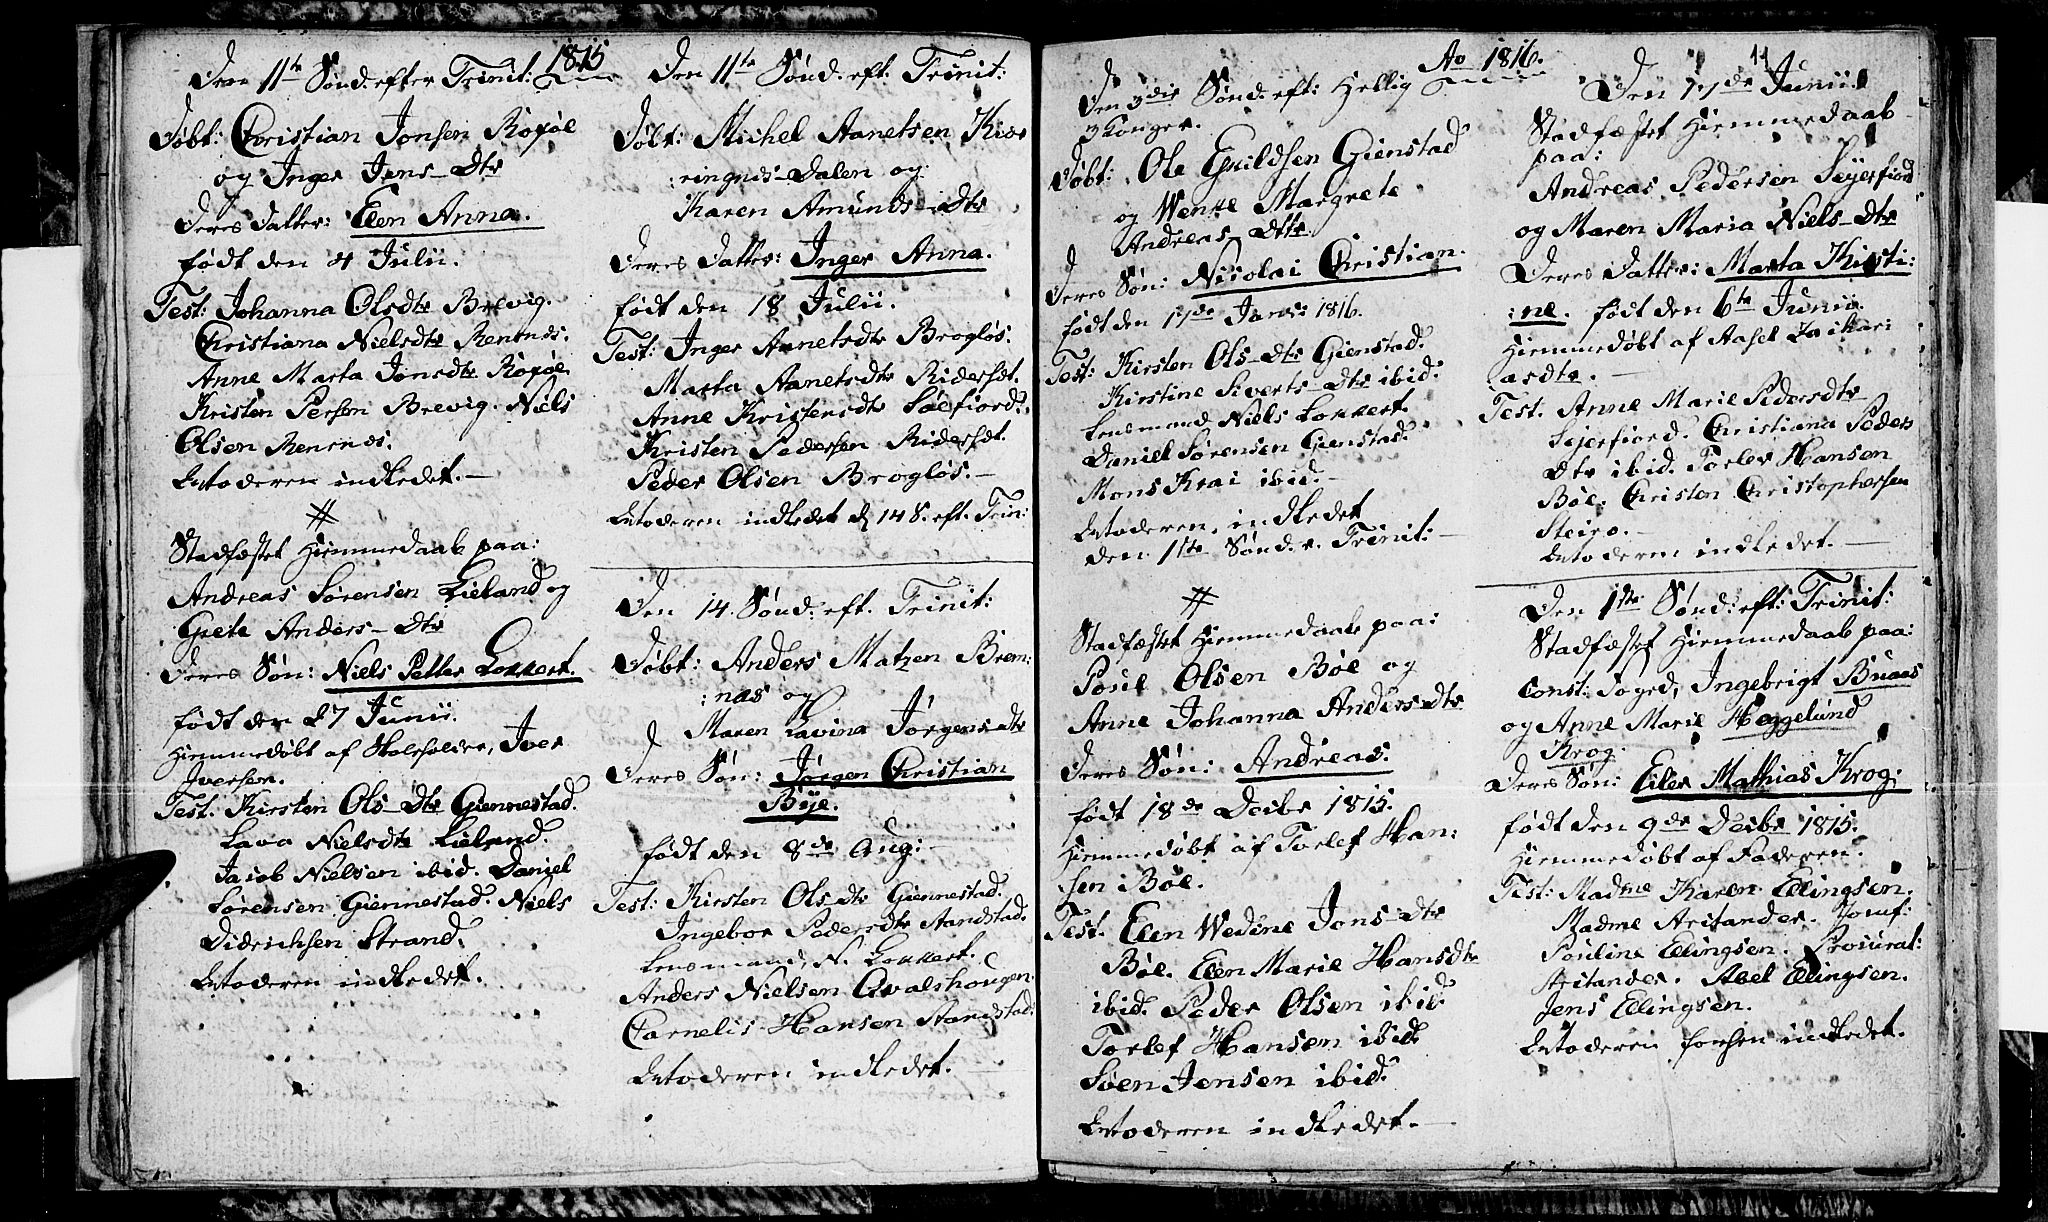 1815
Den 11te Sønd. efter Trinit:
Døbt: Christian Jonsen Roxøe
og Inger Jens-Dtr
Deres Datter: Elen Anna.
født den 4 Julii.
Test: Johanna Olsdtr Brevig.
Christiana Nielsdtr Renenæs.
Anne Marta Jonsdtr Roxøe
Kristen Persen Brevig. Niels
Olsen Renenæs.
Moderen indledet.—
#
Stadfæstet Hiemmedaab paa:
Andreas Sørensen Lieland og
Grete Anders-dtr
Deres Søn: Niels Petter Lokkert.
født den 27 Junii.
Hiemmedøbt af Skoleholder, Iver
Iversen.
Test. Kirsten Ols-Dtr Giennestad.
Lava Nielsdtr Lieland.
Jacob Nielsen ibid. Daniel
Sørensen Giennestad. Niels
Didrichsen Strand.
Moderen indledet.
Den 11te Sønd. eft. Trinit:
Døbt: Michel Aanetsen Kior
:ringnes-Dalen og
Karen Amunds-Dtr
Deres Datter: Inger Anna.
født den 18 Julii.
Test: Inger Aanetsdtr Brogløs.
Marta Aanetsdtr Ridersæt.
Anne Kristensdtr Søefiord.
Kristen Pedersen Ridersæt.
Peder Olsen Brogløs.—
Moderen indledet d 14 S. eft. Trin:
Den 14. Sønd: eft. Trinit:
Døbt: Anders Matzen Brem:
:næs og
Maren Lavina Jørgens-dtr
Deres Søn: Jørgen Christian
Bye.
født den 8de Aug:
Test: Kirsten Ols-dtr Giennestad.
Ingebor Pedersdtr Sandstad.
Lensmand, N. Lokkert.
Anders Nielsen Qvalshougen.
Carnelis Hansen Sandstad.
Moderen indledet.
Ao 1816.
Den 3die Sønd. eft: Hellig
3 Konger.
Døbt: Ole Eskildsen Gienstad
og Wenke Margrete
Andreas-Dtr.
Deres Søn: Nicolai Christian.
født den 17de Janr: 1816.
Test: Kirsten Ols-Dtr Gienstad.
Kirstine Siverts-Dtr ibid.
Lensmand Niels Lokkert.
Daniel Sørensen Gienstad.
Mons Krai ibid.—
Moderen, indledet
den 1ste Sønd. e. Trinit:—
#
Stadfæstet Hiemmedaab paa:
Poul Olsen Bøe og
Anne Johanna Anders-dtr
Deres Søn: Andreas.
født 18de Decbr 1815.
Hiemmedøbt af Torlef Han:
sen Bøe.
Test. Elen Wedine Jons-dtr
Bøe. Elen Marie Hansdtr
ibid. Peder Olsen ibid
Torlef Hansen ibid
Søen Jensen ibid.
Moderen indledet.—
11
Den 17de Junii
Stadfæstet Hiemmedaab
paa:
Andreas Pedersen Seyerfiord
og Maren Maria Niels-Dtr
Deres Datter: Marta Kirsti:
:ne. født den 6te Junii.
Hiemmedøbt af Aasel Zachar:
asdtr.—
Test. Anne Marie Pedersdtr
Seierfiord. Christiana Peders
Dtr ibid. Torlev Hansen
Bøe. Christen Christophersen
Steiro.—
Moderen indledet.—
Den 1ste Sønd: eft: Trinit:
Stadfæstet Hiemmedaab paa:
Const: Foged, Ingebrigt Buaas
og Anne Marie Heggelund
Krog.
Deres Søn: Eiler Mathias Krog:
født den 9de Decbr 1815.
Hiemmedøbt af Faderen.
Test: Madme Karen Ellingsen.
Madme Aritander. Jomf:
Pouline Ellingsen. Procurat:
Aritander. Abel Ellingsen.
Jens Ellingsen.
Moderen forhen indledet.